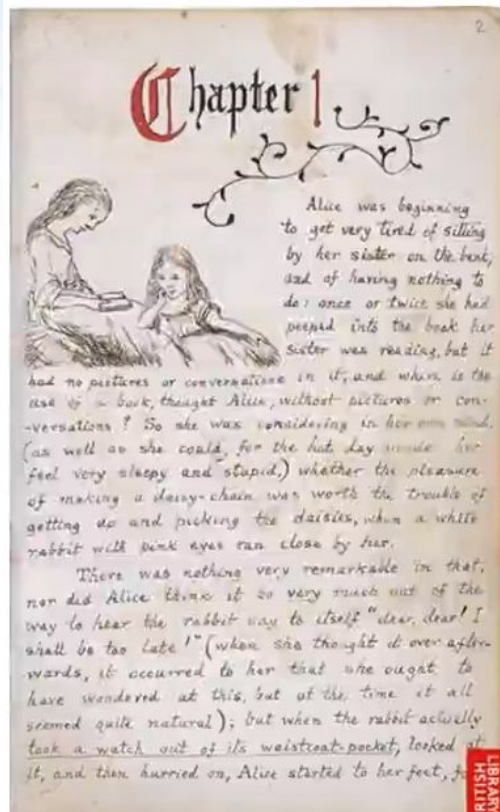 2
Chapter 1
Alice was beginning
to get very tired of sitting
by her sister on the bank,
and of having nothing to
do: once or twice she had
peeped into the book her
sister was reading, but it
had no pictures or conversations in it, and where is the
use of a book, thought Alice, without pictures or con-
-versations? So she was considering in her own mind,
(as well as she could, for the hot day made her
feel very sleepy and stupid,) whether the pleasure
of making a daisy-chain was worth the trouble of
getting up and picking the daisies, when a white
rabbit with pink eyes ran close by her.
There was nothing very remarkable in that,
nor did Alice think it so very much out of the
way to hear the rabbit say to itself "dear, dear! I
shall be too late!" (when she thought it over after-
wards, it occurred to her that she ought to
have wondered at this, but at the time it all
seemed quite natural); but when the rabbit actually
took a watch out of its waistcoat-pocket, looked at
it, and then hurried on, Alice started to her feet,
BRITISH
LIBRARY